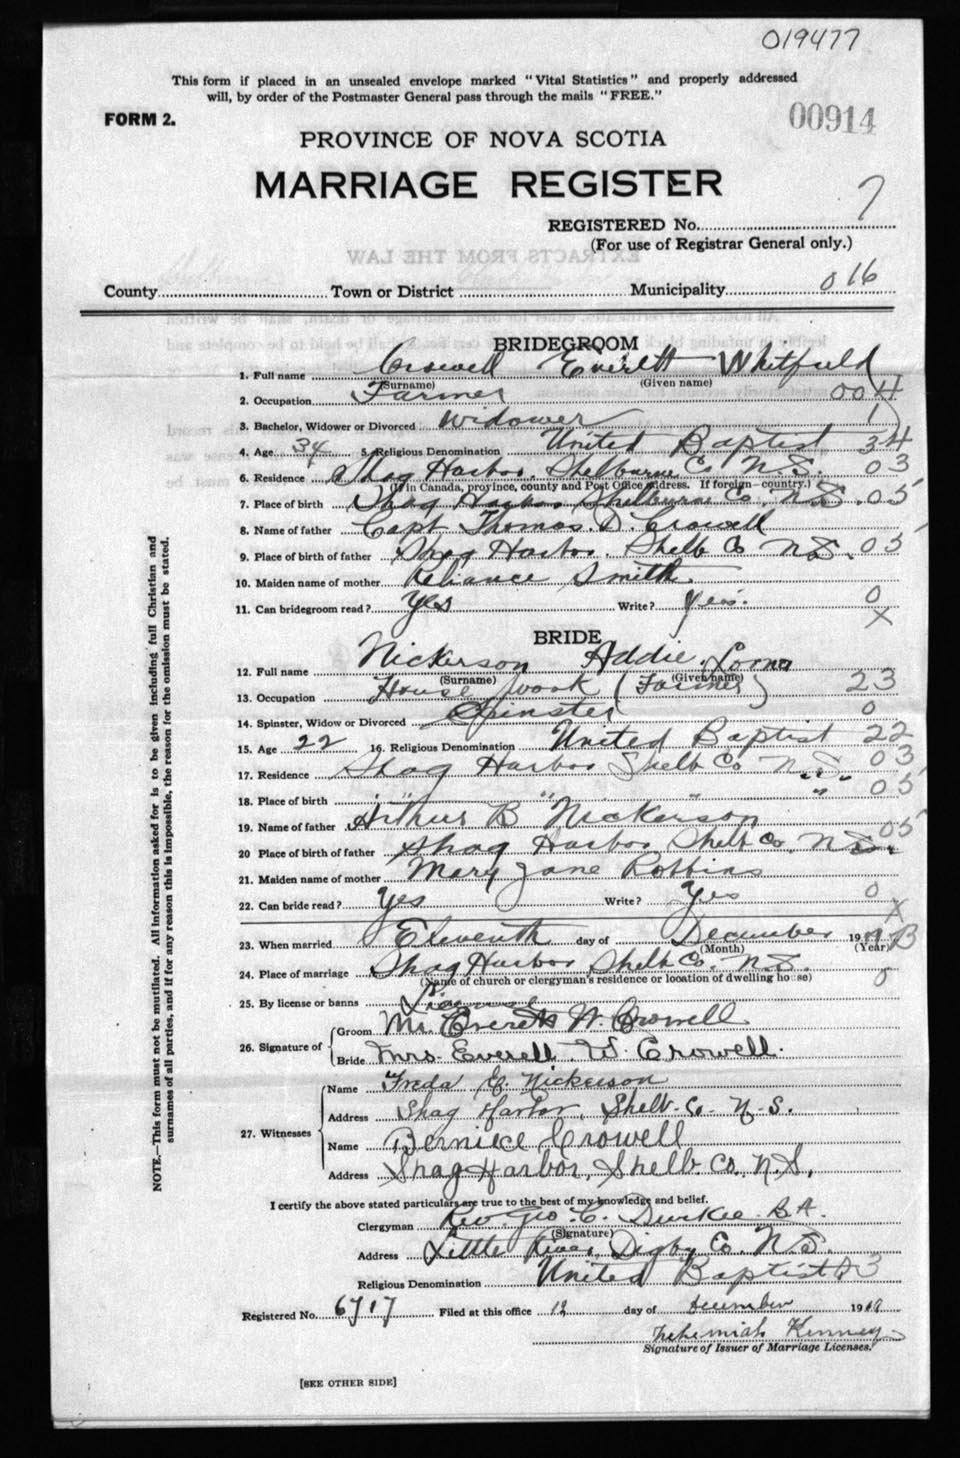 019477
This form if placed in an unsealed envelope marked "Vital Statistics" and properly addressed
will, by order of the Postmaster General pass through the mails "FREE."
FORM 2.
00914
PROVINCE OF NOVA SCOTIA
MARRIAGE REGISTER
REGISTERED No. 7
(For use of Registrar General only.)
County Town or District Municipality 016
BRIDEGROOM
1. Full name Crowell Everett Whitfield
(Surname) (Given name)
2. Occupation Farmer 004
3. Bachelor, Widower or Divorced Widower 1
4. Age 34 5. Religious Denomination United Baptist 34
6. Residence Shag Harbor, Shelburne Co N.S. 03
(If in Canada, province, county and Post Office address. If foreign—country.)
7. Place of birth Shag Harbor Shelburne Co. N.S. 05
8. Name of father Capt Thomas D. Crowell
9. Place of birth of father Shag Harbor. Shelb Co N.S. 05
10. Maiden name of mother Reliance Smith
11. Can bridegroom read? Yes Write? Yes. 0
X
BRIDE
12. Full name Nickerson Addie Loona
(Surname) (Given name)
13. Occupation House work (Farmer) 23
14. Spinster, Widow or Divorced Spinster 0
15. Age 22 16. Religious Denomination United Baptist 22
17. Residence Shag Harbor Shelb Co N.S. 03
18. Place of birth " " " " 05
19. Name of father Arthur B Nickerson
20 Place of birth of father Shag Harbor, Shelb Co. N.S. 05
21. Maiden name of mother Mary Jane Robbins
22. Can bride read? Yes Write? Yes 0
X
23. When married Eleventh day of December 19
(Month) (Year)
24. Place of marriage Shag Harbor, Shelb Co. N.S. 0
(Name of church or clergyman's residence or location of dwelling house)
25. By license or banns License
26. Signature of Groom Mr. Everett W. Crowell
Bride Mrs. Everett W. Crowell.
27. Witnesses
Name Freda E. Nickerson
Address Shag Harbor, Shelb. Co. N.S.
Name Bernice Crowell
Address Shag Harbor, Shelb. Co. N.S.
I certify the above stated particulars are true to the best of my knowledge and belief.
Clergyman Rev. Geo. C. Durkee B.A.
(Signature)
Address Little River, Digby Co. N.S.
Religious Denomination United Baptist 3
Registered No. 6717 Filed at this office 12 day of December 1919
Nehemiah Kenney
Signature of Issuer of Marriage Licenses.
[SEE OTHER SIDE]
NOTE.—This form must not be mutilated. All information asked for is to be given including full Christian and
surnames of all parties, and if for any reason this is impossible, the reason for the omission must be stated.